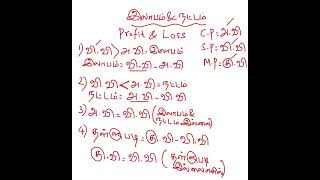 இலாபம் & நட்டம்
Profit & Loss C.P = அ.வி
S.P = வி.வி
M.P = கு.வி
1) வி.வி > அ.வி = இலாபம்
இலாபம் = வி.வி - அ.வி
2) வி.வி < அ.வி = நட்டம்
நட்டம் = அ.வி - வி.வி
3) அ.வி = வி.வி (இலாபம் & நட்டம் இல்லை)
4) தள்ளுபடி = கு.வி - வி.வி
கு.வி = வி.வி (தள்ளுபடி இல்லையெனில்)